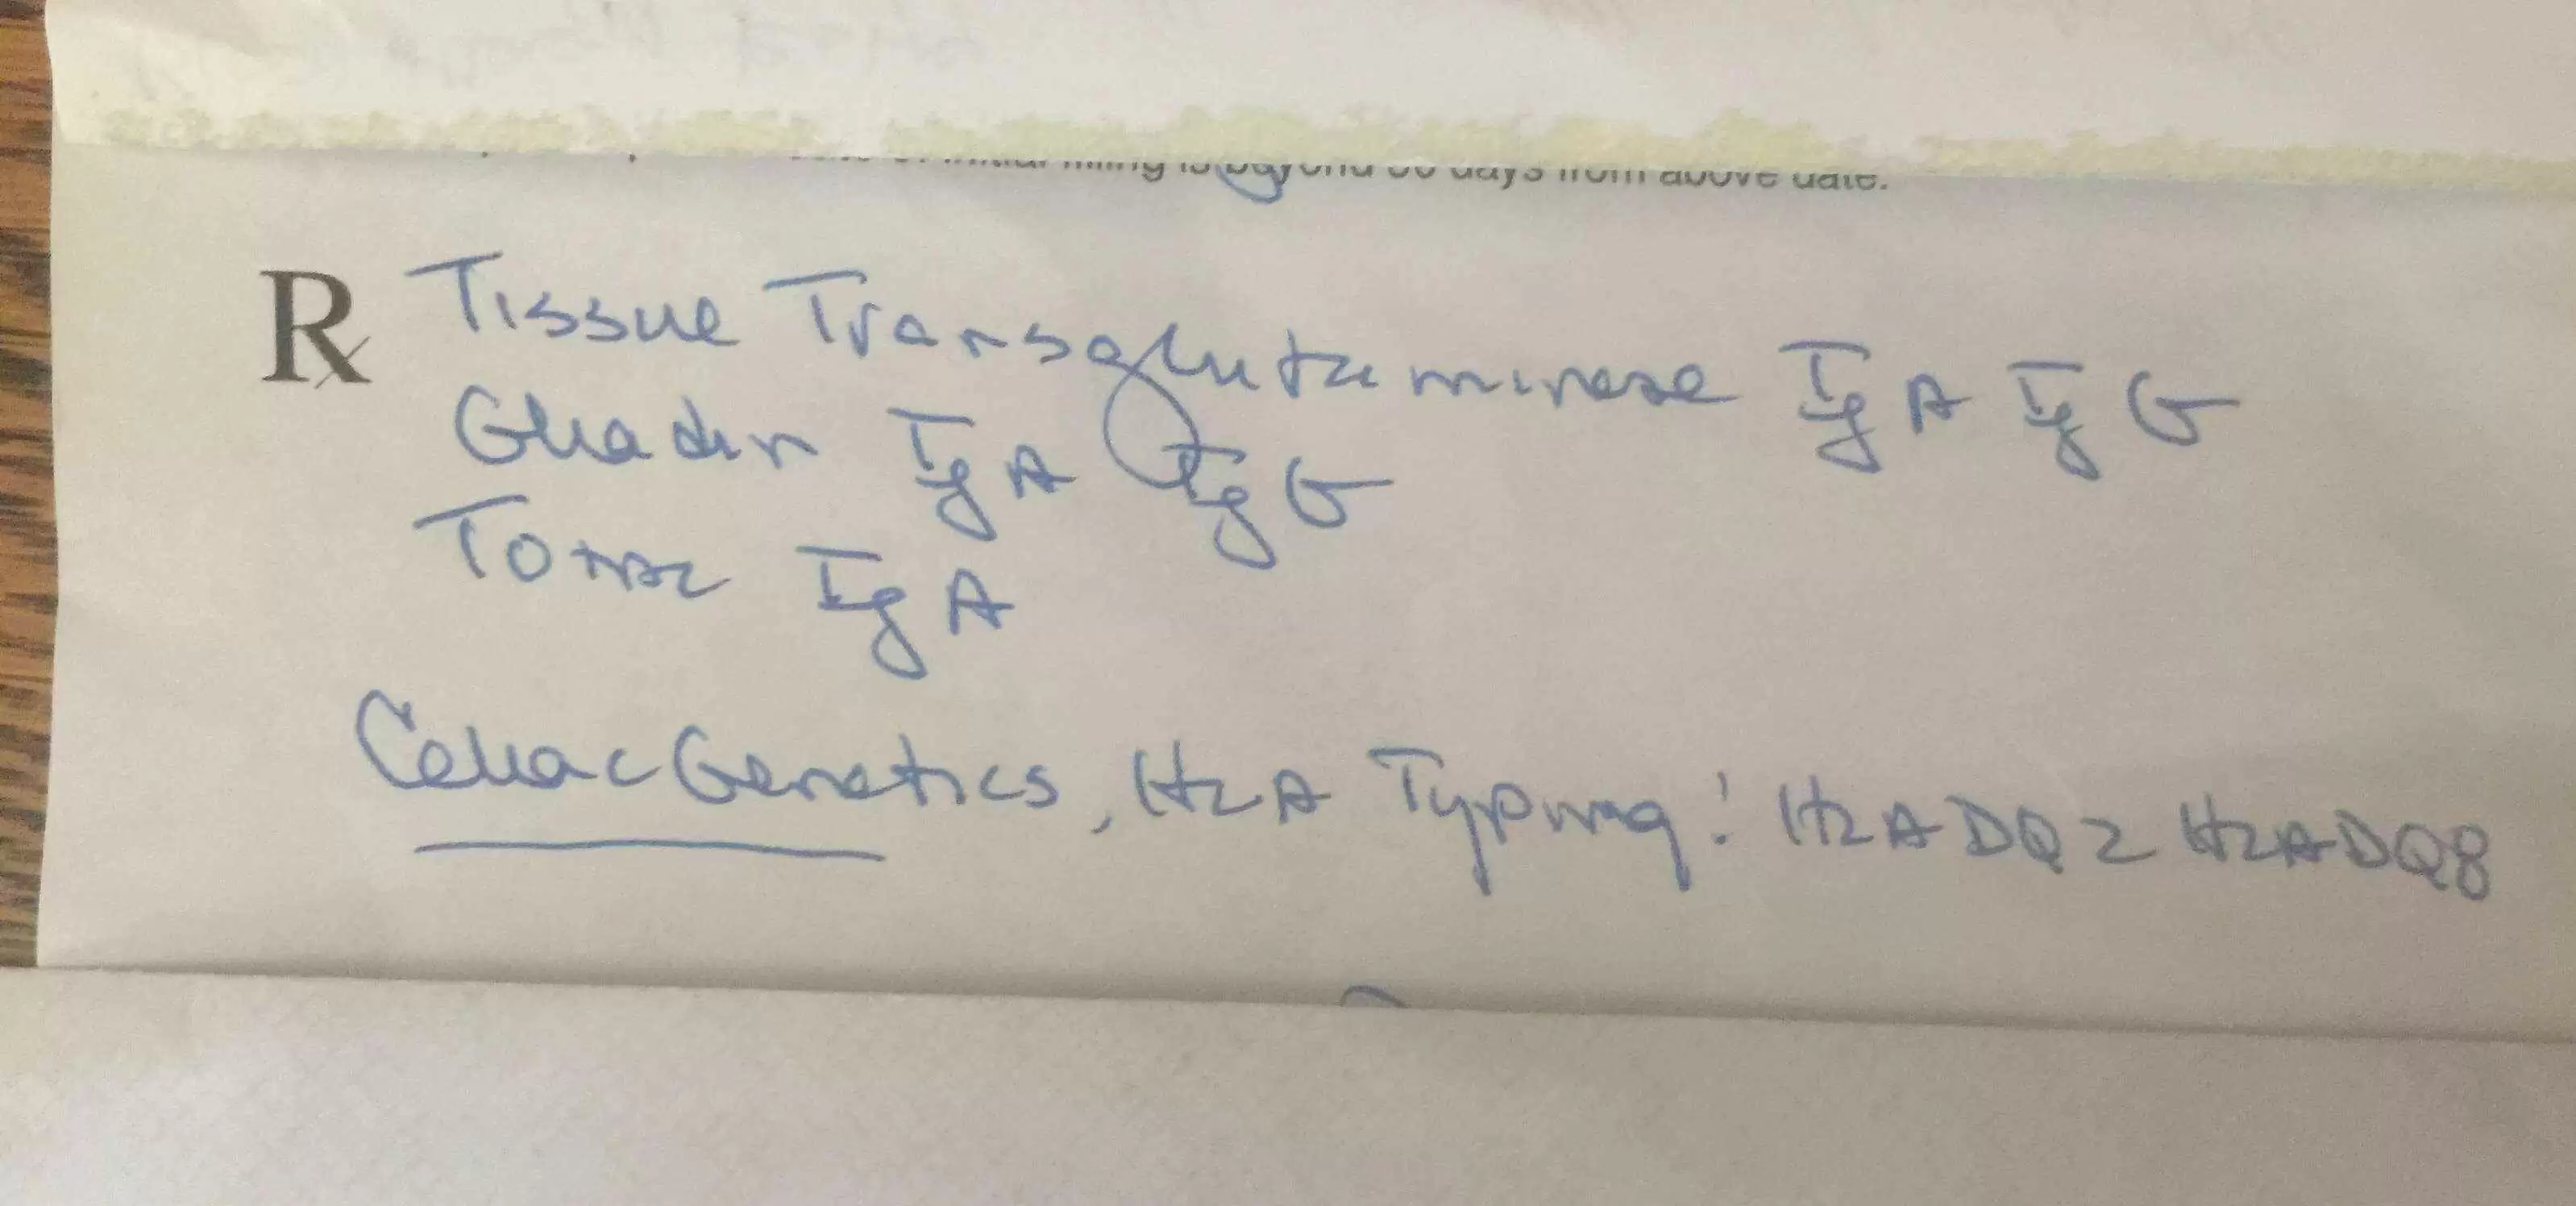 initial filling is beyond 30 days from above date.
Rx Tissue Transglutaminase IgA IgG
Gliadin IgA IgG
Total IgA
Celiac Genetics, HLA Typing: HLA DQ2 HLA DQ8